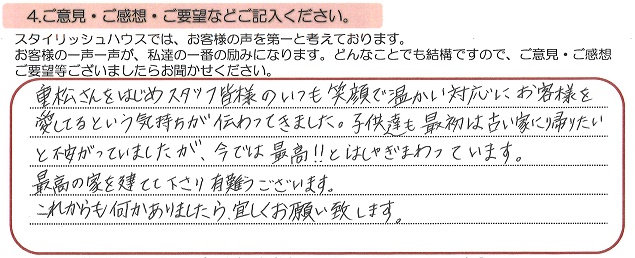 4.ご意見・ご感想・ご要望などご記入ください。
スタイリッシュハウスでは、お客様の声を第一と考えております。
お客様の一声一声が、私達の一番の励みになります。どんなことでも結構ですので、ご意見・ご感想
ご要望等ございましたらお聞かせください。
重松さんをはじめスタッフ皆様のいつも笑顔で温かい対応にお客様を
愛してるという気持ちが伝わってきました。子供達も最初は古い家に帰りたい
と嫌がっていましたが、今では最高!!とはしゃぎまわっています。
最高の家を建てて下さり有難うございます。
これからも何かありましたら、宜しくお願い致します。